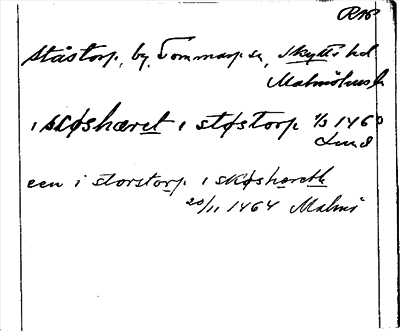 RAP
Ståstorp, by, Tommarp sn, Skytts hd
Malmöhus l
i skøshæret i støstorp 1/3 1460
Lund
een i storstorp i skøshæreth
20/11 1464 Malmö